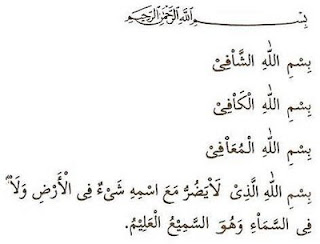 بِسْمِ اللّٰهِ الرَّحْمٰنِ الرَّحِيْمِ
بِسْمِ اللّٰهِ الشَّافِىْ
بِسْمِ اللّٰهِ الْكَافِىْ
بِسْمِ اللّٰهِ الْمُعَافِىْ
بِسْمِ اللّٰهِ الَّذِىْ لَايَضُرُّ مَعَ اسْمِهِ شَىْءٌ فِى الْأَرْضِ وَلَا
فِى السَّمَاءِ وَهُوَ السَّمِيْعُ الْعَلِيْمُ.